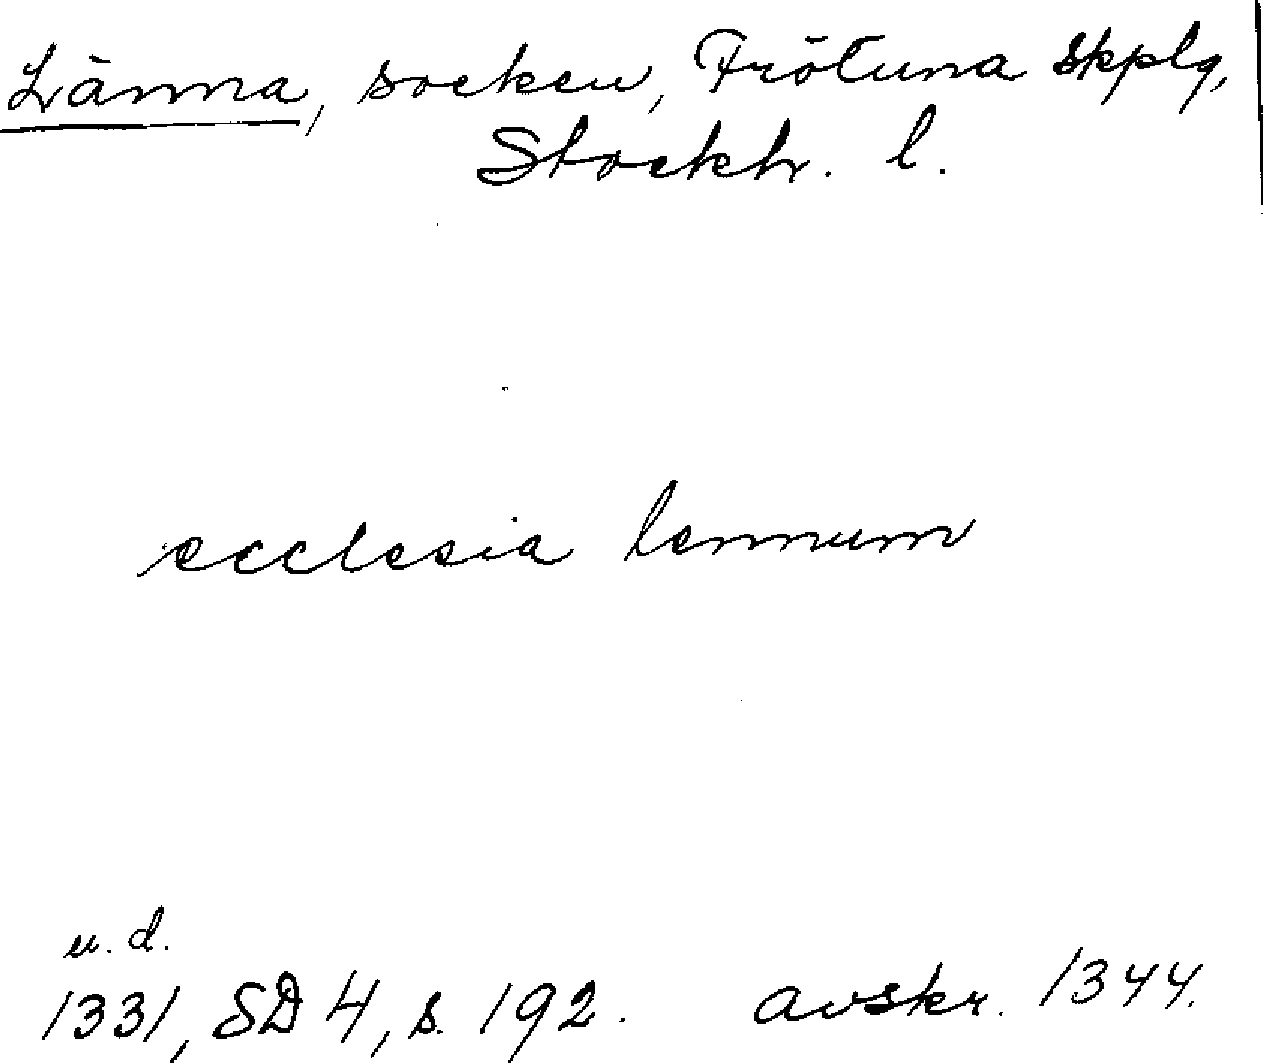 Länna, socken, Frötuna skplg,
Stockh. l.
ecclesia lennum
u. d.
1331, SD 4, s. 192. avskr. 1344.